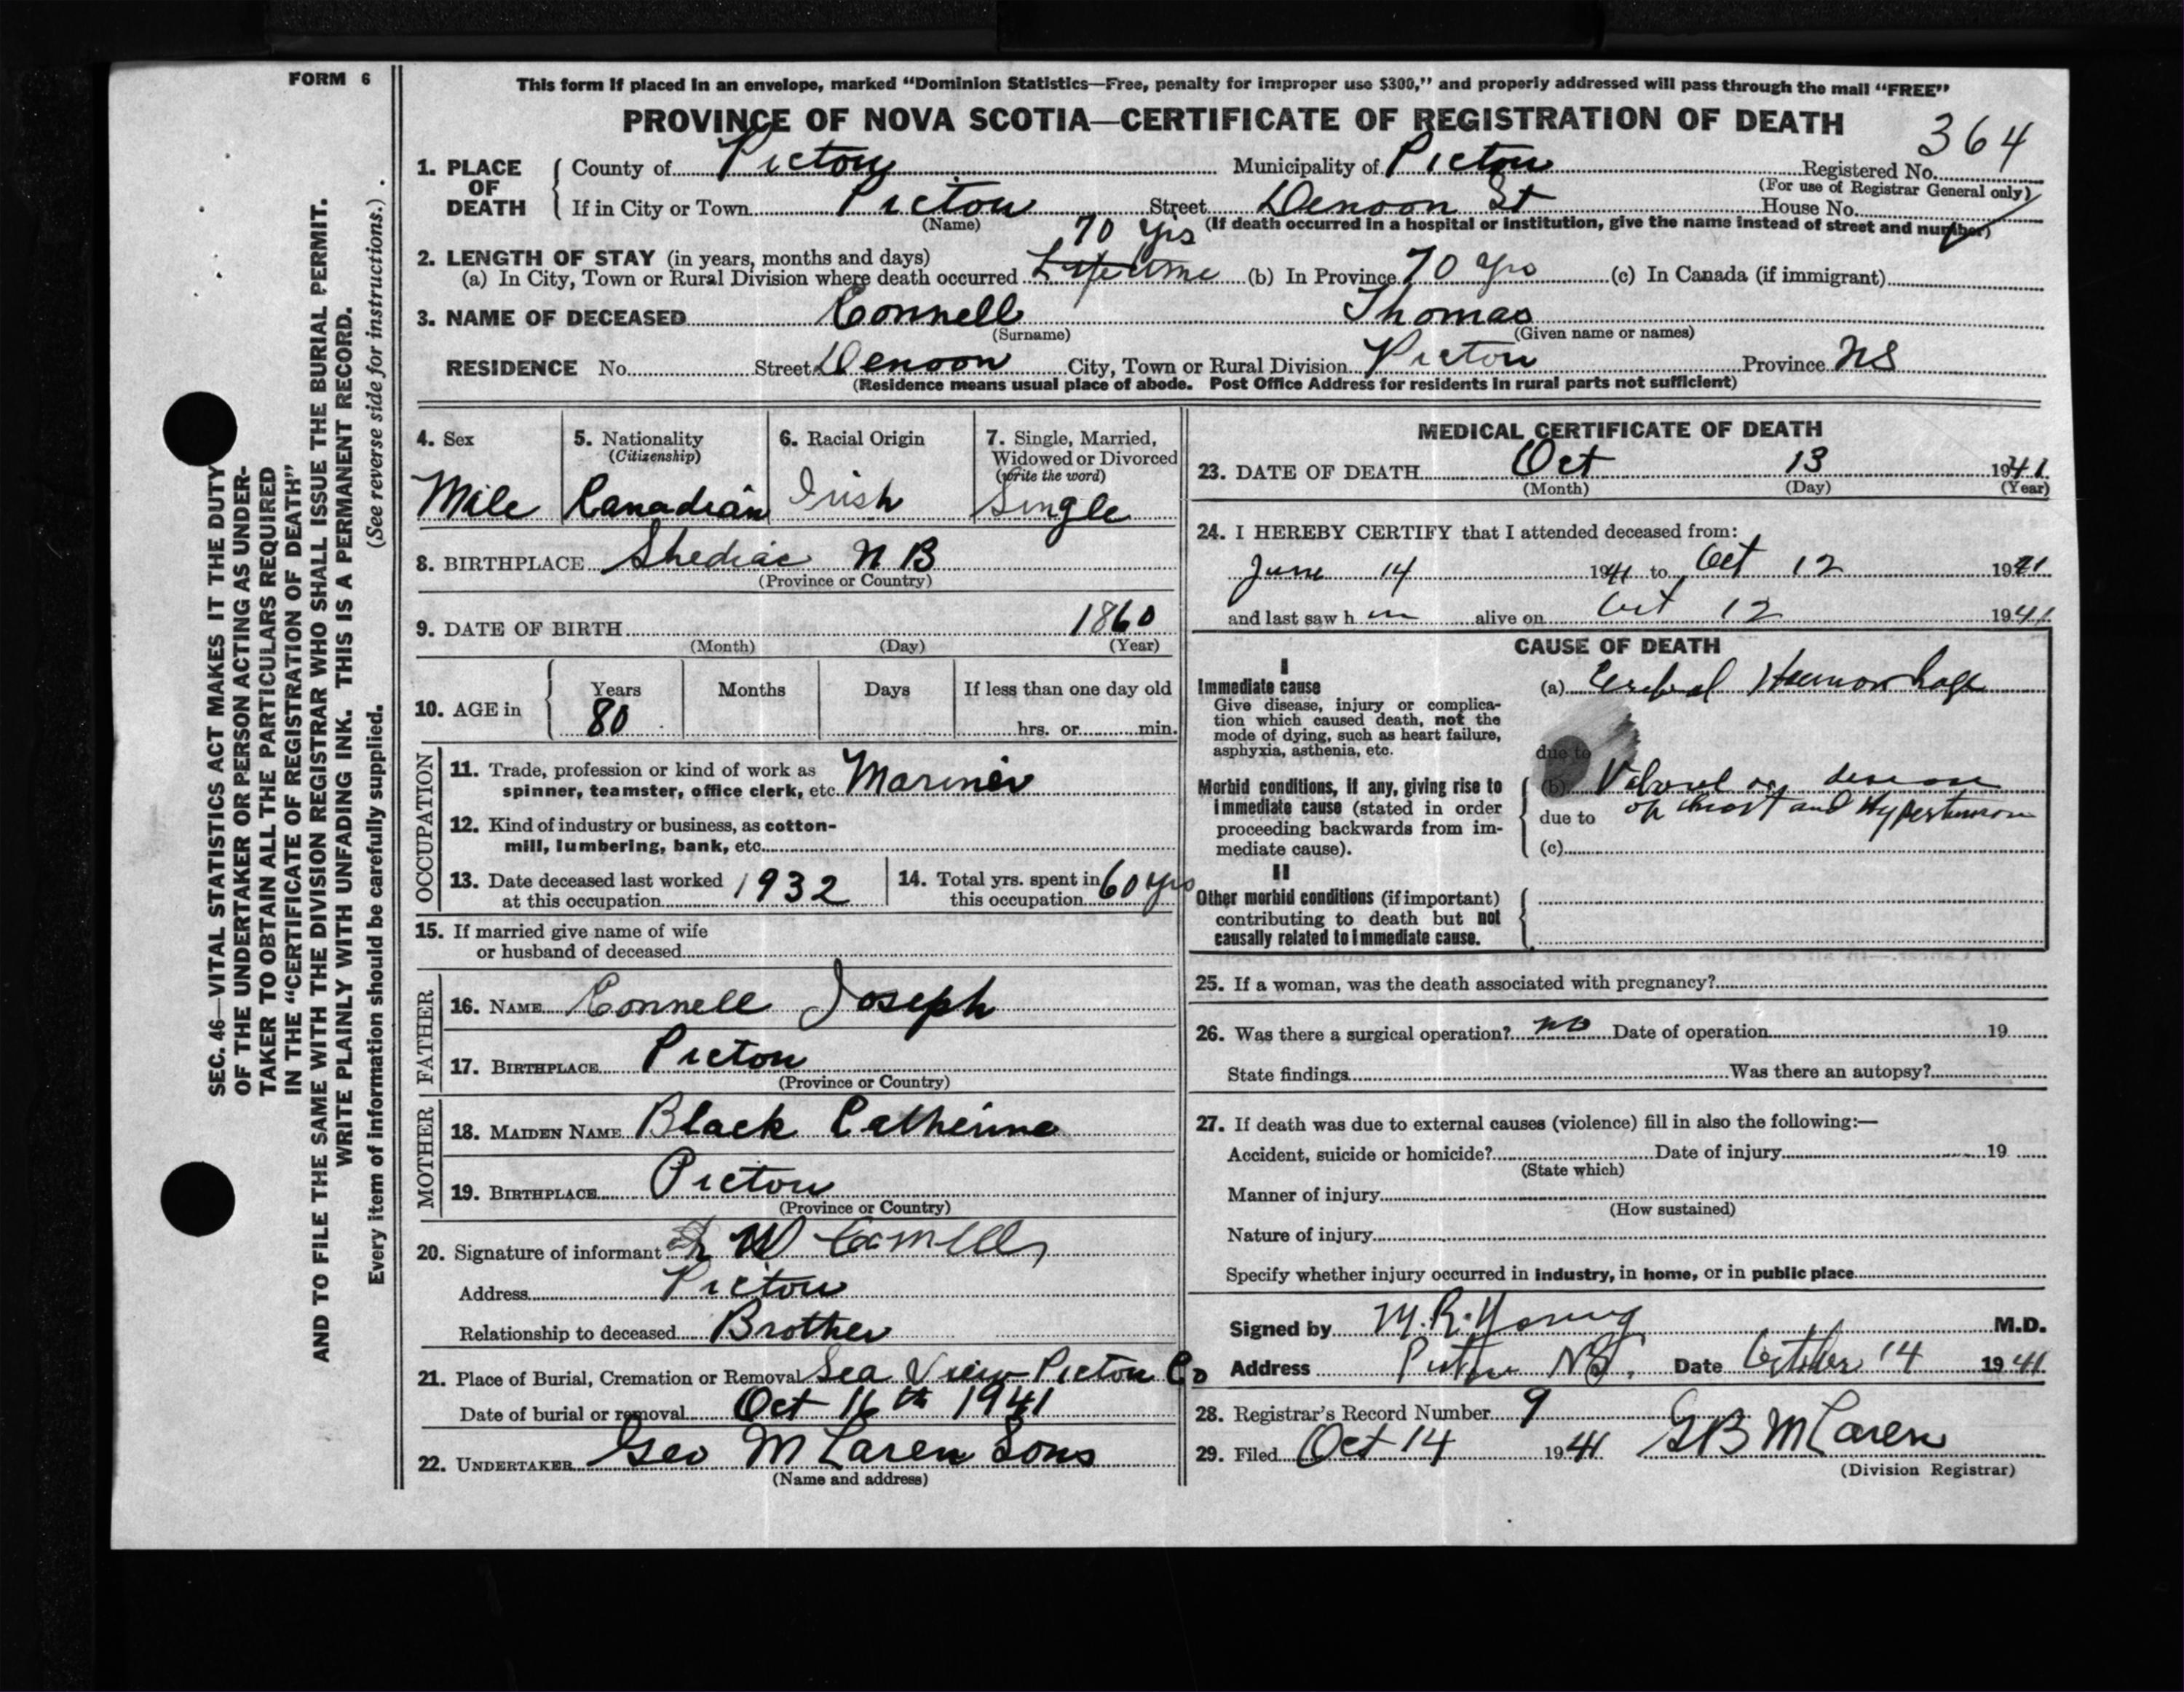 FORM 6
This form if placed in an envelope, marked "Dominion Statistics—Free, penalty for improper use $300," and properly addressed will pass through the mail "FREE"
PROVINCE OF NOVA SCOTIA—CERTIFICATE OF REGISTRATION OF DEATH
364
1. PLACE OF DEATH County of Pictou Municipality of Pictou Registered No.
(For use of Registrar General only)
If in City or Town Pictou Street Denoon St House No.
(Name) (If death occurred in a hospital or institution, give the name instead of street and number)
70 yrs
2. LENGTH OF STAY (in years, months and days)
(a) In City, Town or Rural Division where death occurred Lifetime (b) In Province 70 yrs (c) In Canada (if immigrant)
3. NAME OF DECEASED Connell Thomas
(Surname) (Given name or names)
RESIDENCE No. Street Denoon City, Town or Rural Division Pictou Province NS
(Residence means usual place of abode. Post Office Address for residents in rural parts not sufficient)
4. Sex 5. Nationality 6. Racial Origin 7. Single, Married,
(Citizenship) Widowed or Divorced
(write the word)
Male Canadian Irish Single
8. BIRTHPLACE Shediac N B
(Province or Country)
9. DATE OF BIRTH 1860
(Month) (Day) (Year)
10. AGE in Years Months Days If less than one day old
80 hrs. or min.
OCCUPATION
11. Trade, profession or kind of work as
spinner, teamster, office clerk, etc. Mariner
12. Kind of industry or business, as cotton-
mill, lumbering, bank, etc.
13. Date deceased last worked
at this occupation 1932
14. Total yrs. spent in
this occupation 60 yrs
15. If married give name of wife
or husband of deceased
FATHER
16. NAME Connell Joseph
17. BIRTHPLACE Pictou
(Province or Country)
MOTHER
18. MAIDEN NAME Black Catherine
19. BIRTHPLACE Pictou
(Province or Country)
20. Signature of informant W Connell
Address Pictou
Relationship to deceased Brother
21. Place of Burial, Cremation or Removal Sea View Pictou Co
Date of burial or removal Oct 16th 1941
22. UNDERTAKER Geo McLaren Sons
(Name and address)
MEDICAL CERTIFICATE OF DEATH
23. DATE OF DEATH Oct 13 1941
(Month) (Day) (Year)
24. I HEREBY CERTIFY that I attended deceased from:
June 14 1941 to Oct 12 1941
and last saw h im alive on Oct 12 1941
CAUSE OF DEATH
I
Immediate cause
Give disease, injury or complica-
tion which caused death, not the
mode of dying, such as heart failure,
asphyxia, asthenia, etc.
(a) Cerebral Haemorrhage
due to
Morbid conditions, if any, giving rise to
immediate cause (stated in order
proceeding backwards from im-
mediate cause).
(b) disease
due to of heart and Hypertension
(c)
II
Other morbid conditions (if important)
contributing to death but not
causally related to immediate cause.
25. If a woman, was the death associated with pregnancy?
26. Was there a surgical operation? no Date of operation 19
State findings Was there an autopsy?
27. If death was due to external causes (violence) fill in also the following:—
Accident, suicide or homicide? Date of injury 19
(State which)
Manner of injury
(How sustained)
Nature of injury
Specify whether injury occurred in industry, in home, or in public place
Signed by M.R. Young M.D.
Address Pictou N.S. Date October 14 1941
28. Registrar's Record Number 9
29. Filed Oct 14 1941 G B McLaren
(Division Registrar)
SEC. 46—VITAL STATISTICS ACT MAKES IT THE DUTY
OF THE UNDERTAKER OR PERSON ACTING AS UNDER-
TAKER TO OBTAIN ALL THE PARTICULARS REQUIRED
IN THE "CERTIFICATE OF REGISTRATION OF DEATH"
AND TO FILE THE SAME WITH THE DIVISION REGISTRAR WHO SHALL ISSUE THE BURIAL PERMIT.
WRITE PLAINLY WITH UNFADING INK. THIS IS A PERMANENT RECORD.
Every item of information should be carefully supplied. (See reverse side for instructions.)